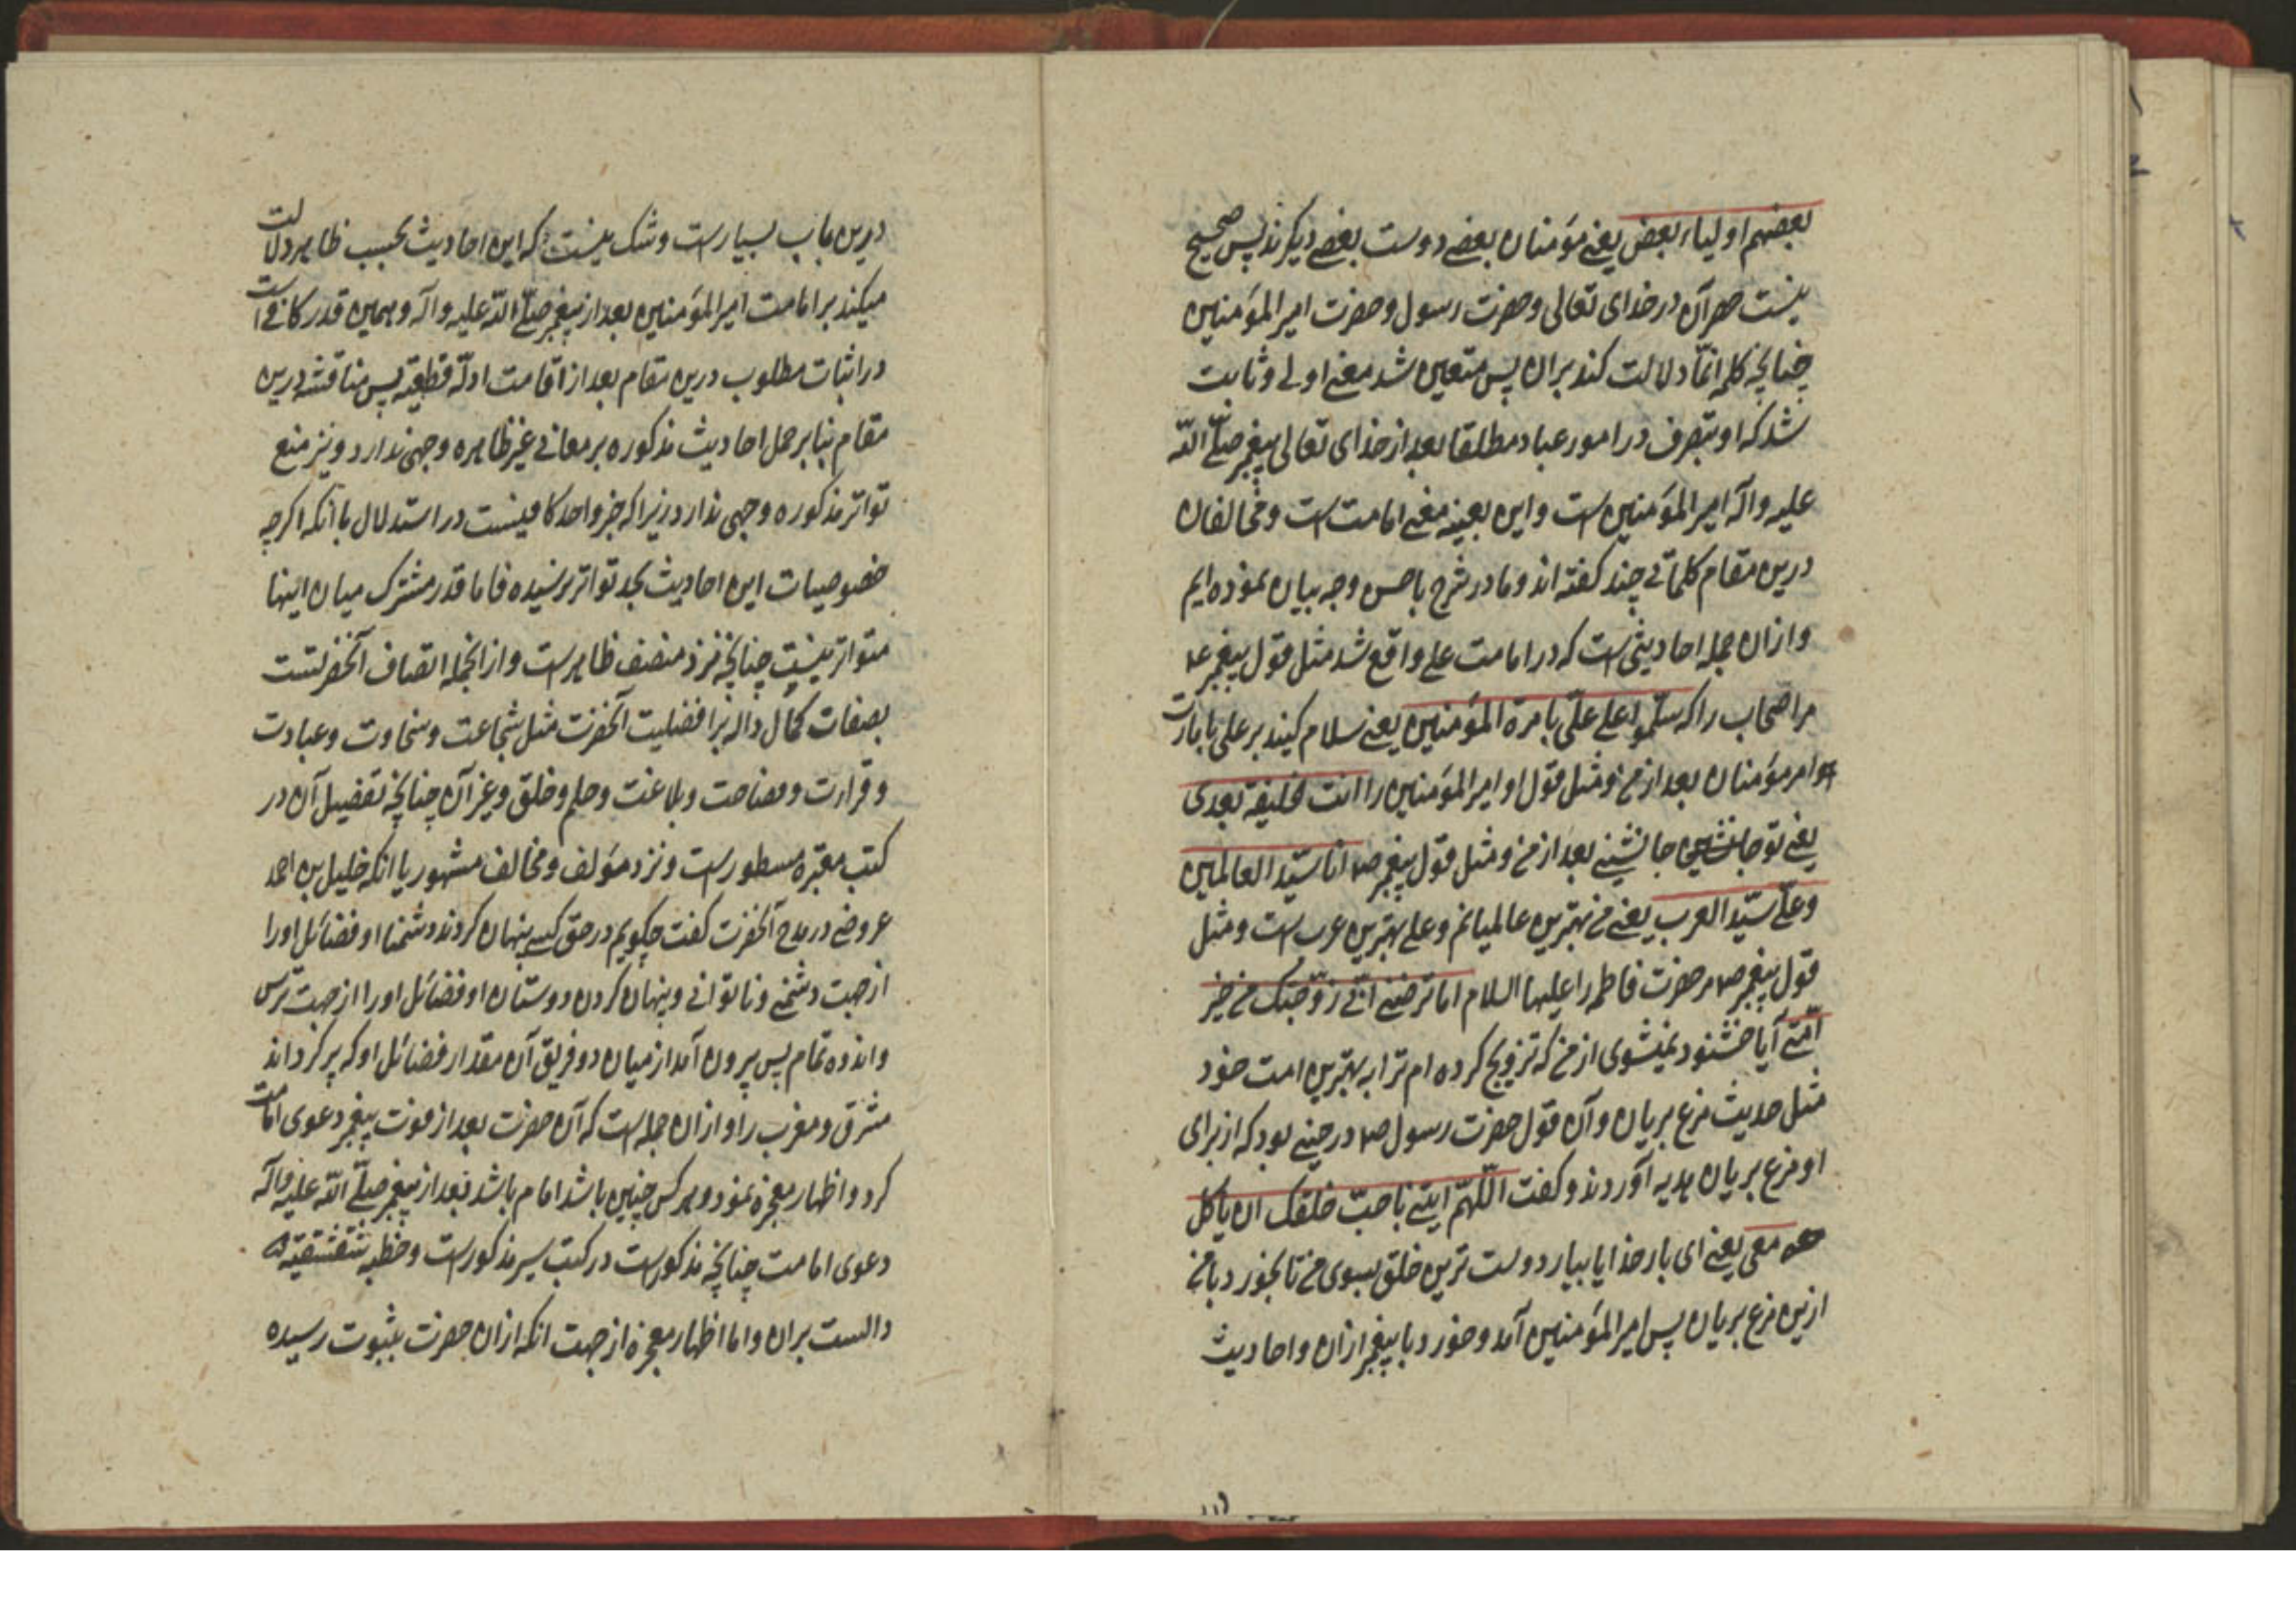 بعضهم اولیاء بعض یعنے مؤمنان بعضے دوست بعضے دیکرند پس صحیح
نیست حصر آن در خدای تعالی و حضرت رسول و حضرت امیر المؤمنین
چنانچه کلمه انّما دلالت کند بران پس متعین شد معنے اولے و ثابت
شد که او متصرف در امور عباد مطلقا بعد از خدای تعالی پیغمبر صلّے اللّه
علیه واله امیر المؤمنین است و این بعینه معنے امامت است و مخالفان
درین مقام کلماتے چند کفته اند و ما در شرح باحسن وجه بیان نموده ایم
و ازان جمله احادیثی است که در امامت علے واقع شد مثل قول پیغمبر ع
مر اصحاب را که سلّموا علے علّی بامرة المؤمنین یعنے سلام کنید بر علی بامارت
و امر مؤمنان بعد از من و مثل قول او امیر المؤمنین را انت خلیفة بعدی
یعنے تو جانشین جانشینے بعد از من و مثل قول پیغمبر ص انا سیّد العالمین
و علّے سیّد العرب یعنے من بهترین عالمیانم و علے بهترین عرب است و مثل
قول پیغمبر ص مر حضرت فاطمه را علیها السلام اما ترضینے انّے زوّجتک من خیر
امّتے آیا خشنود نمیشوی از من که تزویج کرده ام ترا به بهترین امت خود
مثل حدیث مرغ بریان و آن قول حضرت رسول ص در حینے بود که از برای
او مرغ بریان هدیه آوردند و کفت اللّهمّ ایتنے باحبّ خلقک ان یاکل
معی یعنے ای بار خدایا بیار دوست ترین خلق بسوی من تا بخورد با من
ازین مرغ بریان پس امیر المؤمنین آمد و خورد با پیغمبر ازان و احادیث
درین باب بسیار است و شک نیست که این احادیث بحسب ظاهر دلالت
میکند بر امامت امیر المؤمنین بعد از پیغمبر صلّے اللّه علیه واله و همین قدر کافے است
در اثبات مطلوب درین مقام بعد از اقامت ادلّه قطعیّه پس مناقشه درین
مقام بنابر حمل احادیث مذکوره بر معانے غیر ظاهره وجهی ندارد و نیز منع
تواتر مذکوره وجهی ندارد زیرا که خبر واحد کافیست در استدلال با آنکه اکرچه
خصوصیات این احادیث بحد تواتر نرسیده فاما قدر مشترک میان اینها
متواتر نیست چنانچه نزد منصف ظاهر است و از انجمله اتصاف آنحضرتست
بصفات کمال داله بر افضلیت آنحضرت مثل شجاعت و سخاوت و عبادت
و قرارت و فصاحت و بلاغت و حلم و خلق و غیر آن چنانچه تفصیل آن در
کتب معتبره مسطور است و نزد مؤلف و مخالف مشهور یا انکه خلیل بن احمد
عروضے در مدح آنحضرت کفت چکویم در حق کسے پنهان کردند دشمنا او فضائل اورا
از جهت دشمنے و ناتوانے و پنهان کردن دوستان او فضائل اورا از جهت ترس
و اندوه تمام پس بیرون آمد از میان دو فریق آن مقدار فضائل او که پر کرداند
مشرق و مغرب را و ازان جمله است که آن حضرت بعد از فوت پیغمبر دعوی امامت
کرد و اظهار معجزه نمود و هر کس چنین باشد امام باشد بعد از پیغمبر صلّے اللّه علیه واله
دعوی امامت چنانچه مذکور است در کتب سیر مذکور است و خطبه شقشقیّه
دالست بران و اما اظهار معجزه از جهت انکه ازان حضرت بثبوت رسیده